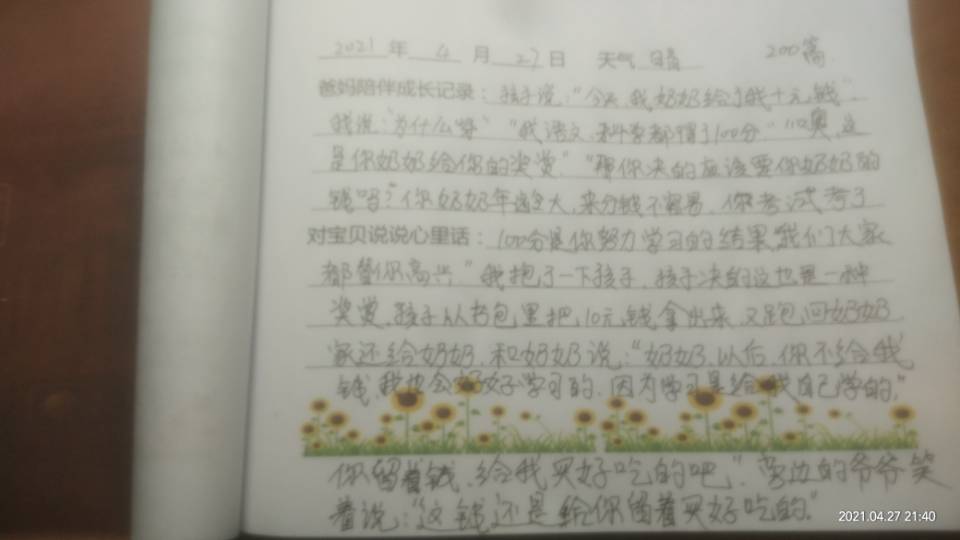 2021年 4月 27日 天气 晴 200高
爸妈陪伴成长记录：孩子说："今天,我奶奶给了我十元钱"
我说："为什么呀" "我语文,科学都得了100分" "噢,这
是你奶奶给你的奖赏" "那你决的应该要你奶奶的
钱吗?"你奶奶年龄大,来分钱不容易,你考试考了
对宝贝说说心里话：100分是你努力学习的结果,我们大家
都替你高兴"我抱了一下孩子,孩子决的这也是一种
奖赏,孩子从书包里把10元钱拿出来,又跑回奶奶
家还给奶奶,和奶奶说："奶奶,以后,你不给我
钱,我也会好好学习的,因为学习是给我自己学的,"
你留着钱,给我买好吃的吧,"旁边的爷爷笑
着说："这钱还是给你留着买好吃的"
2021.04.27 21:40